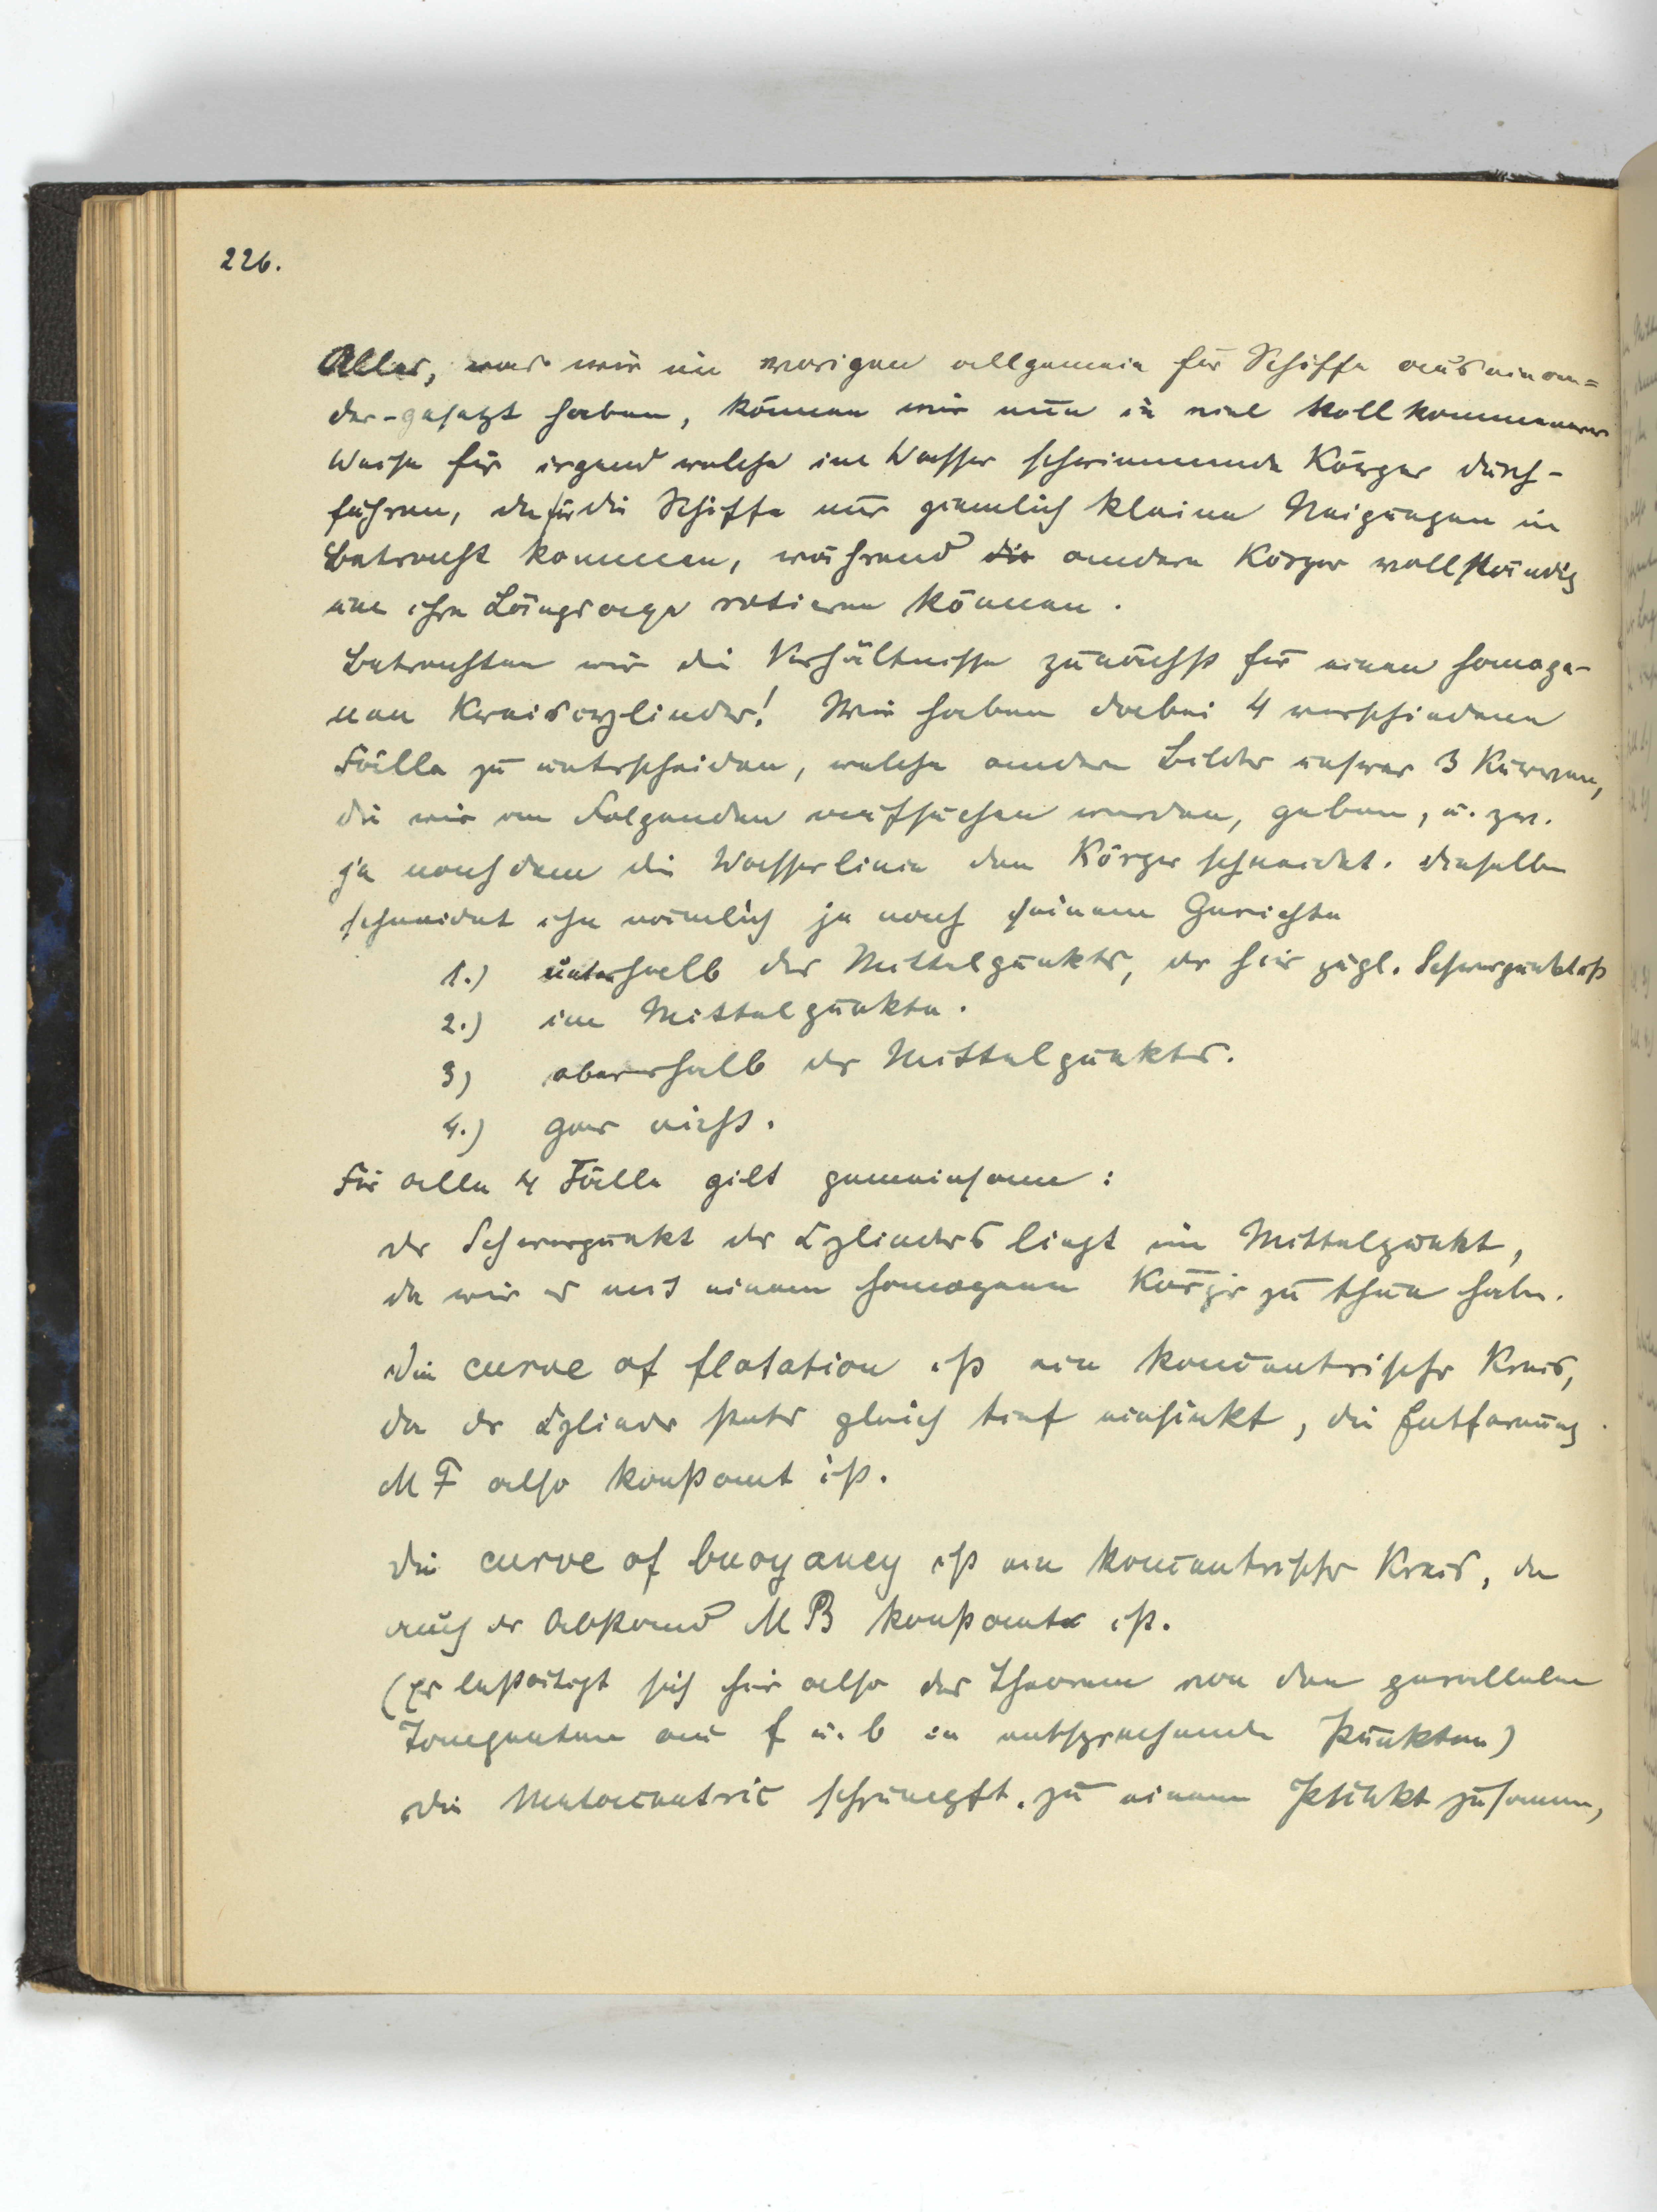 226.
Alles, was wir im vorigen allgemein für Schiffe auseinan=
der-gesetzt haben, können wir nun in viel vollkommenerer
Weise für irgend welche im Wasser schwimmende Körper durch-
führen, da für die Schiffe nur ziemlich kleine Neigungen in
Betracht kommen, während die andere Körper vollständig
um ihre Längsaxe rotieren können.
Betrachten wir die Verhältnisse zunächst für einen homoge-
nen Kreiscylinder! Wir haben dabei 4 verschiedene
Fälle zu unterscheiden, welche andere Bilder unserer 3 Kurven,
die wir im Folgenden aufsuchen werden, geben, u. zw.
je nachdem die Wasserlinie den Körper schneidet. Dieselbe
schneidet ihn nämlich je nach seinem Gewichte
1.) unterhalb des Mittelpunkts, der hier zugl. Schwerpunkt ist
2.) im Mittelpunkte.
3) oberhalb des Mittelpunktes.
4.) gar nicht.
Für alle 4 Fälle gilt gemeinsam:
der Schwerpunkt des Cylinders liegt im Mittelpunkt,
da wir es mit einem homogenen Körper zu thun haben.
Die curve of flotation ist ein koncentrischer Kreis,
da der Cylinder stets gleich tief einsinkt, die Entfernung
M F also konstant ist.
Die curve of buoyancy ist ein koncentrischer Kreis, da
auch der Abstand M B konstant ist.
(Es bestätigt sich hier also das Theorem von den parallelen
Tangenten an f u. b in entsprechenden Punkten)
Die Metacentric schrumpft zu einem Punkt zusammen,